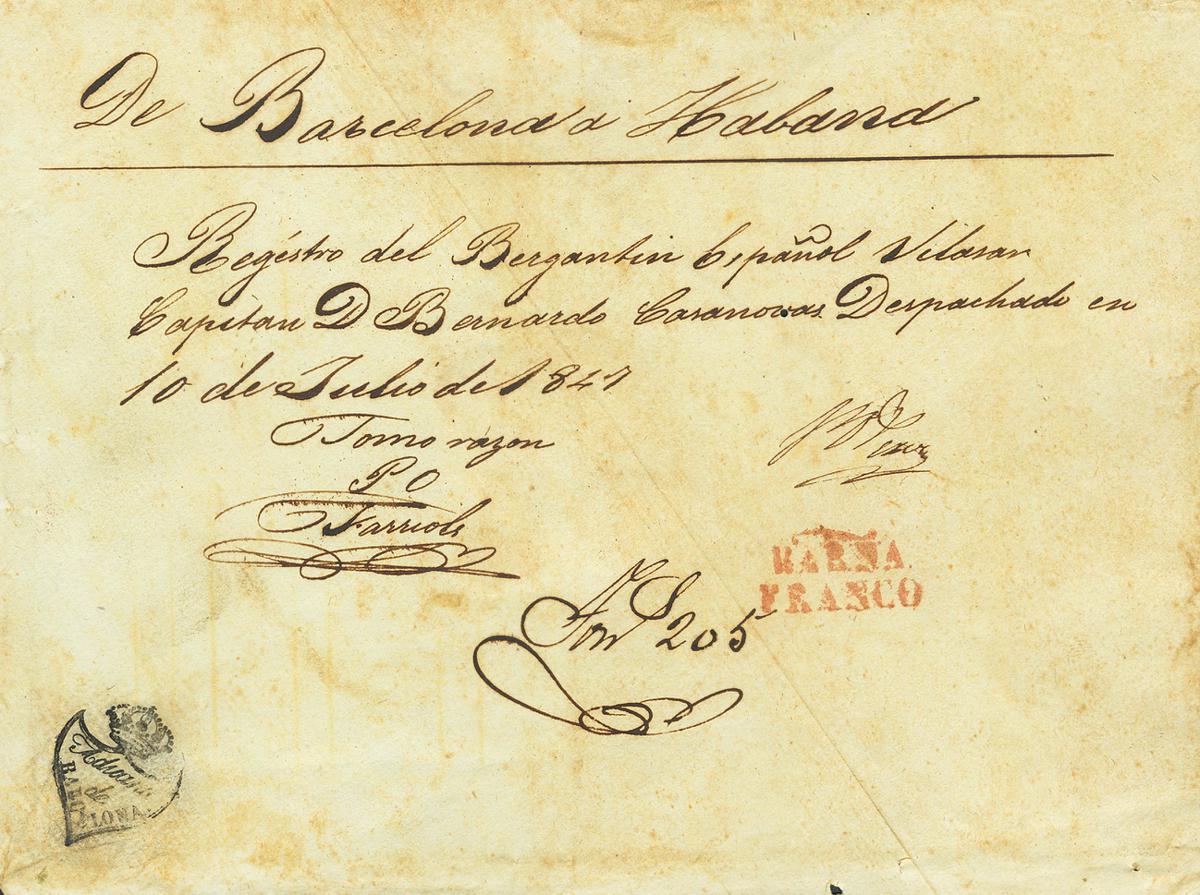 De Barcelona a Habana
Registro del Bergantin Español Vilasar
Capitan D Bernardo Casanovas Despachado en
10 de Julio de 1847
Tomo razon
P O
Farriols
205
BARNA
FRANCO
de
BARCELONA